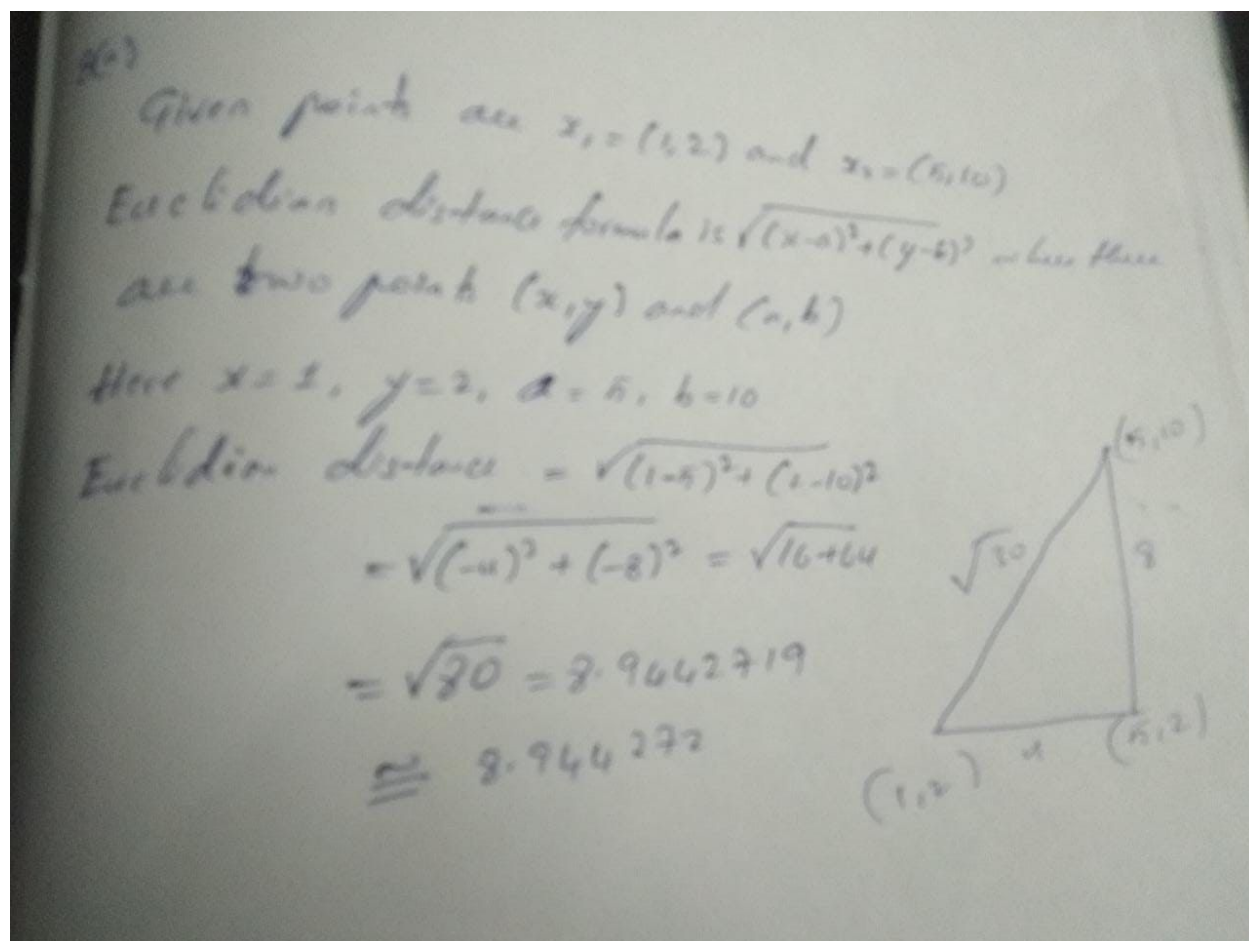 Given points are x₁ = (1,2) and x₂ = (5,10)
Euclidian distance formula is √(x-a)²+(y-b)² where there
are two points (x,y) and (a,b)
Here x=1, y=2, a=5, b=10
Euclidian distance = √(1-5)²+(2-10)²
= √(-4)²+(-8)² = √16+64
= √80 = 8.9442719
≅ 8.944272
(5,10)
√80
8
(1,2)
4
(5,2)